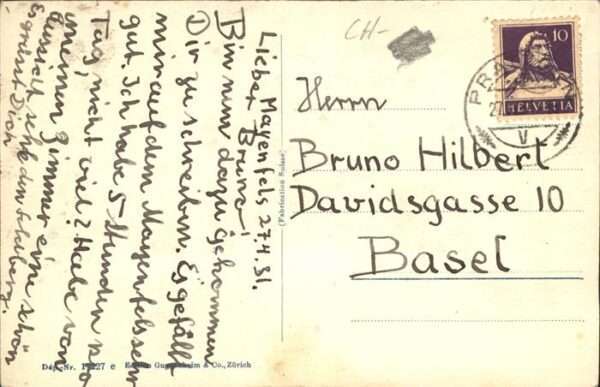 Mayenfels 27.4.31.
Lieber Bruno!
Bin nun dazu gekommen
Dir zu schreiben. Es gefällt
mir auf dem Mayenfels sehr
gut. Ich habe 5 Stunden pro
Tag, nicht viel? Habe von
meinem Zimmer eine schön
Aussicht, sehe den
Es grüsst Dich
CH-
10
HELVETIA
PRA
V
Herrn
Bruno Hilbert
Davidsgasse 10
Basel
(Fabrication Suisse)
Dép.-Nr. e Guggenheim & Co., Zürich